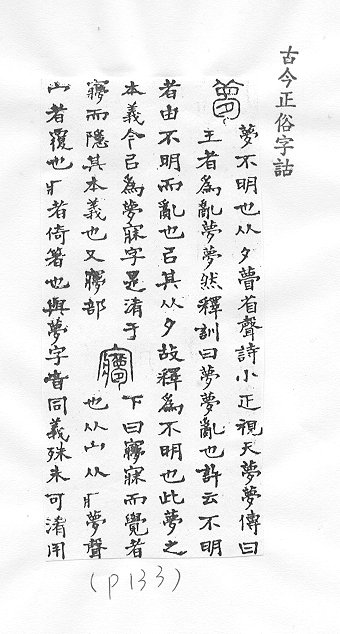 古今正俗字詁
夢
夢不明也从夕瞢省聲詩小正視天夢夢傳曰
王者為亂夢夢然釋訓曰夢夢亂也許云不明
者由不明而亂也㠯其从夕故釋為不明也此夢之
本義今㠯為夢寐字是淆于
㝱而隱其本義也又㝱部
㝱
下曰㝱寐而覺者
也从宀从爿夢聲
宀者覆也爿者倚箸也與夢字音同義殊未可淆用
(p133)